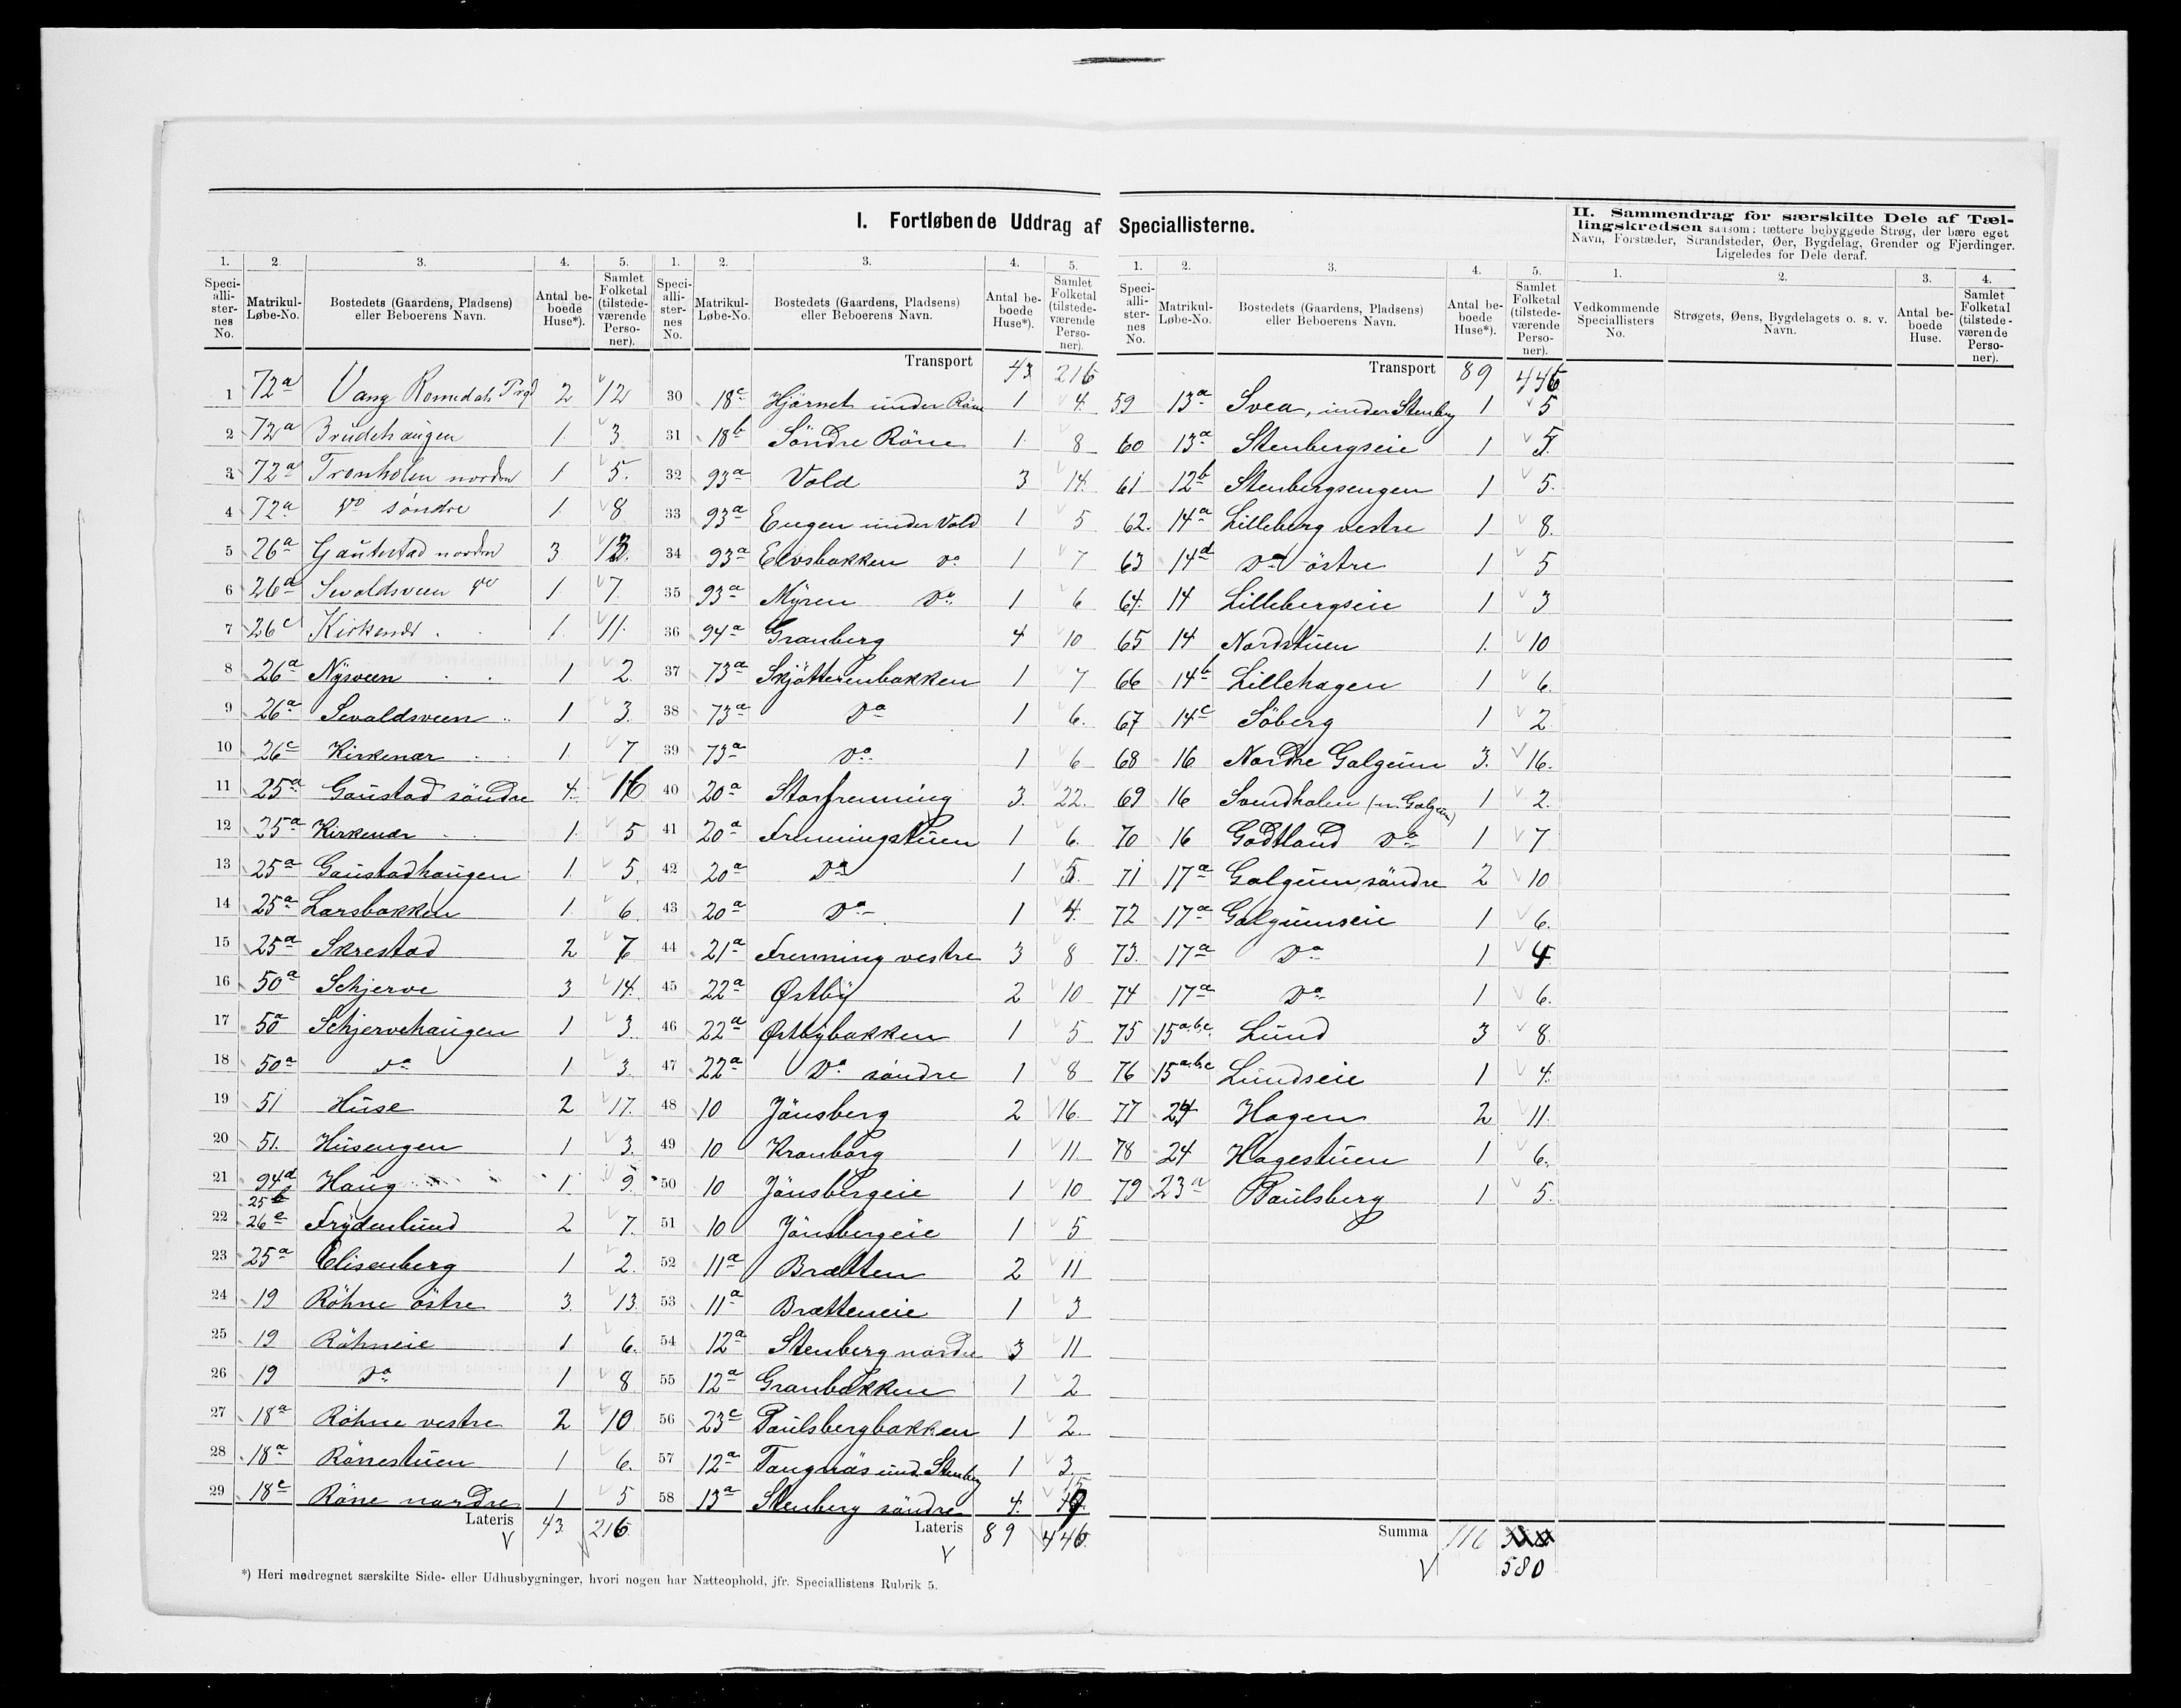 I. Fortløbende Uddrag af Speciallisterne.
II. Sammendrag for særskilte Dele af Tællingskredsen saasom: tættere bebyggede Strøg, der bære eget
Navn, Forstæder, Strandsteder, Øer, Bygdelag, Grender og Fjerdinger.
Ligeledes for Dele deraf.
1. 2. 3. 4. 5.
Speciallisternes No. Matrikul-Løbe-No. Bostedets (Gaardens, Pladsens) eller Beboerens Navn. Antal beboede Huse*). Samlet Folketal (tilstedeværende Personer).
1 72a Vang Romedals 2 12
2 72a Brudehaugen 1 3
3 72a Tronholen nordre 1 5.
4 72a do søndre 1 8
5 26a Gaustad nordre 3 13.
6 26a Sevaldsveen do 1 7.
7 26c Kirkenær 1 11.
8 26a Nysveen 1 2.
9 26a Sevaldsveen 1 3.
10 26c Kirkenær 1 7
11 25a Gaustad söndre 4. 16
12 25a Kirkenær 1. 5
13 25a Gaustadhaugen 1. 5.
14 25a Larsbakken 1 6.
15 25a Skrestad 2 7
16 50a Schjerve 3 14.
17 50a Schjervehaugen 1 3.
18 50a do 1 3.
19 51 Huse 2 17.
20 51. Husengen 1 3.
21 94d Haug 1 9.
22 25b 26e Frydenlund 2 7.
23 25a Elisenberg 1 2.
24 19 Röhne östre 3. 13.
25 19 Röhneie 1 6.
26 19 Do 1 8
27 18a Röhne vestre 2 10
28 18a Rönestuen 1 6.
29 18c Röne nordre 1 5
Lateris 43 216
1. 2. 3. 4. 5.
Speciallisternes No. Matrikul-Løbe-No. Bostedets (Gaardens, Pladsens) eller Beboerens Navn. Antal beboede Huse*). Samlet Folketal (tilstedeværende Personer).
Transport 43 216
30 18c Hjörnet under Röne 1 4.
31 18b Söndre Röne 1 8
32 93a Vold 3 14.
33 93a Engen under Vold 1 5
34 93a Elvsbakken Do 1 7
35 93a Myren Do 1 6
36 94a Granberg 4 10
37 73a Skjötterenbakken 1 7
38 73a Do 1 6.
39 73a Do 1 6
40 20a Storfrenning 3. 22.
41 20a Frenningstuen 1 6.
42 20a Do 1 5.
43 20a Do 1 4.
44 21a Frenning vestre 3 8
45 22a Østby 2 10
46 22a Østbybakken 1 5
47 22a Do söndre 1 8
48 10 Jönsberg 2 16.
49 10 Kranborg 1 11
50 10 Jönsbergeie 1 10
51 10 Jönsbergeie 1 5
52 11a Brætten 2 11
53 11a Brætteneie 1 3
54 12a Stenberg nordre 3 11
55 12a Granbakken 1 2
56 23c Paulsbergbakken 1 2.
57 12a Tangnäs und. Stenberg 1 3.
58 13a Stenberg söndre 4. 15
Lateris 89 446
1. 2. 3. 4. 5.
Speciallisternes No. Matrikul-Løbe-No. Bostedets (Gaardens, Pladsens) eller Beboerens Navn. Antal beboede Huse*). Samlet Folketal (tilstedeværende Personer).
Transport 89 446
59 13a Svea, under Stenberg 1 5
60 13a Stenbergseie 1 5.
61 12b Stenbergsengen 1 5.
62. 14a Lilleberg vestre 1 8.
63 14d Do östre 1 5
64. 14 Lillebergseie 1 3
65 14 Nordstuen 1. 10
66 14b Lillehagen 1 6.
67 14c Söberg 1 2
68 16 Nordre Galgum 3. 16.
69 16 Svendholen (n. Galgum) 1 2.
70 16 Godtland Do 1 7
71 17a Galgum söndre 2 10
72 17a Galgumseie 1 6.
73. 17a Do 1 4
74 17a Do 1 6.
75 15a.b.c. Lund 3 8.
76 15a.b.c Lundseie 1 4.
77 24 Hagen 2 11.
78 24 Hagestuen 1 6.
79 23a Paulsberg 1 5.
Summa 116
580
1. 2. 3. 4.
Vedkommende Speciallisters No. Strøgets, Øens, Bygdelagets o. s. v. Navn. Antal beboede Huse. Samlet Folketal (tilstedeværende Personer).
*) Heri medregnet særskilte Side- eller Udhusbygninger, hvori nogen har Natteophold, jfr. Speciallistens Rubrik 5.